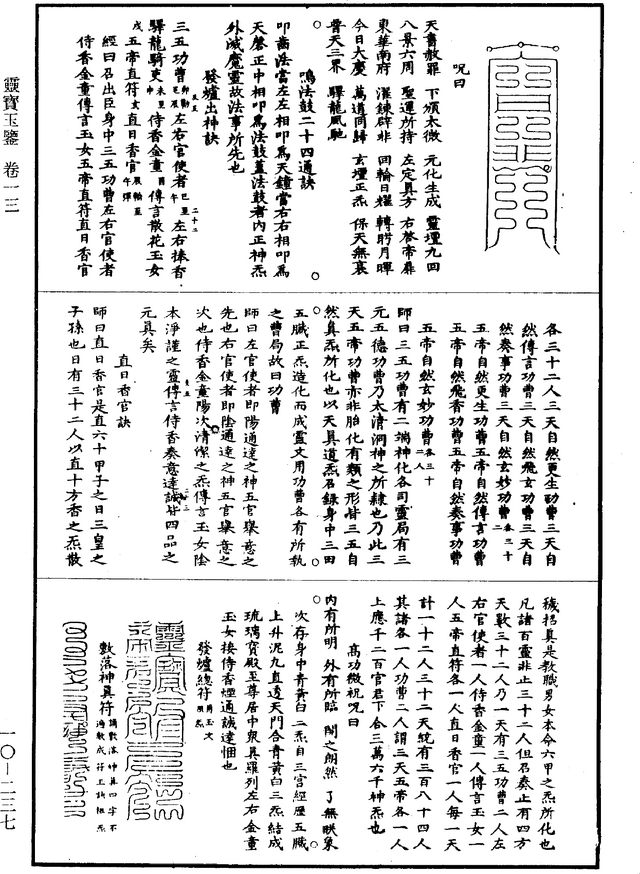 靈寶玉鑒 卷一三
一〇—二三七
呪曰
天書赦罪 下頒太微 元化生成 靈壇九回
八景六周 聖運所持 左定真方 右啓帝扉
東華南府 濯鍊辟非 回輪日耀 轉眄月暉
今日大慶 萬道同歸 玄壇正炁 保天無衰
普天三界 驛龍風馳
鳴法鼓二十四通訣
叩齒法當左左相叩爲天鐘當右右相叩爲
天磬正中相叩爲法鼓蓋法鼓者內正神炁
外滅魔靈故法事所先也
發爐出神訣
三五功曹 左右官使者 左右捧香
驛龍騎吏 侍香金童 傳言散花玉女
五帝直符 直日香官
經曰召出臣身中三五功曹左右官使者
侍香金童傳言玉女五帝直符直日香官
各三十二人三天自然更生功曹三天自
然傳言功曹三天自然飛玄功曹三天自
然奏事功曹三天自然玄妙功曹各三十二
五帝自然更生功曹五帝自然傳言功曹
五帝自然飛香功曹五帝自然奏事功曹
五帝自然玄妙功曹各三十二人
師曰三五功曹有二端神化各司靈局有三
元五德功曹乃太清洞神之所隸也乃此三
天五帝功曹亦非胎化有類之形皆三五自
然真炁所化也以天真道炁召錄身中三田
五臟正炁造化而成靈文用功曹各有所執
之曹局故曰功曹
師曰左官使者即陽通達之神五官舉意之
先也右官使者即陰通達之神五官舉意之
次也侍香金童陽次清潔之炁傳言玉女陰
本淨謹之靈傳言侍香奏意達誠皆四品之
元真矣
直日香官訣
師曰直日香官是直六十甲子之日三皇之
子孫也日有三十二人以直十方香之炁散
穢招真是教職男女本命六甲之炁所化也
凡諸百靈非止三十二人但召奏止有四方
天數三十二人乃一天有三五功曹二人左
右官使者一人侍香金童一人傳言玉女一
人五帝直符各一人直日香官一人每一天
計一十二人三十二天統有三百八十四人
其諸各一人功曹二人謂三天五帝各一人
上應千二百官君下合三萬六千神炁也
高功微祝呪曰
內有所明 外有所臨 閉之朗然 了無暎象
次存身中青黃白三炁自三宮經歷五臟
上升泥九直透天門合青黃白三炁結成
琉璃寶殿至尊居中衆真羅列左右金童
玉女接侍香煙通誠達悃也
發爐總符
敷落神真符